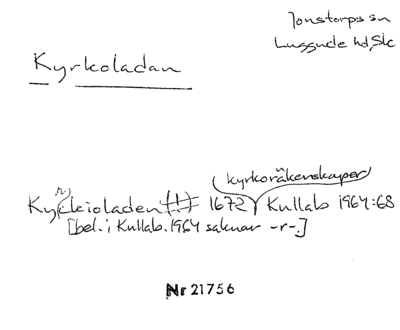 Jonstorps sn
Luggude hd, Sk
Kyrkoladan
kyrkoräkenskaper
r)
Kyrckioladen (!) 1672 Kullab 1964:68
[bel. i Kullab. 1964 saknar -r-.]
Nr 21756